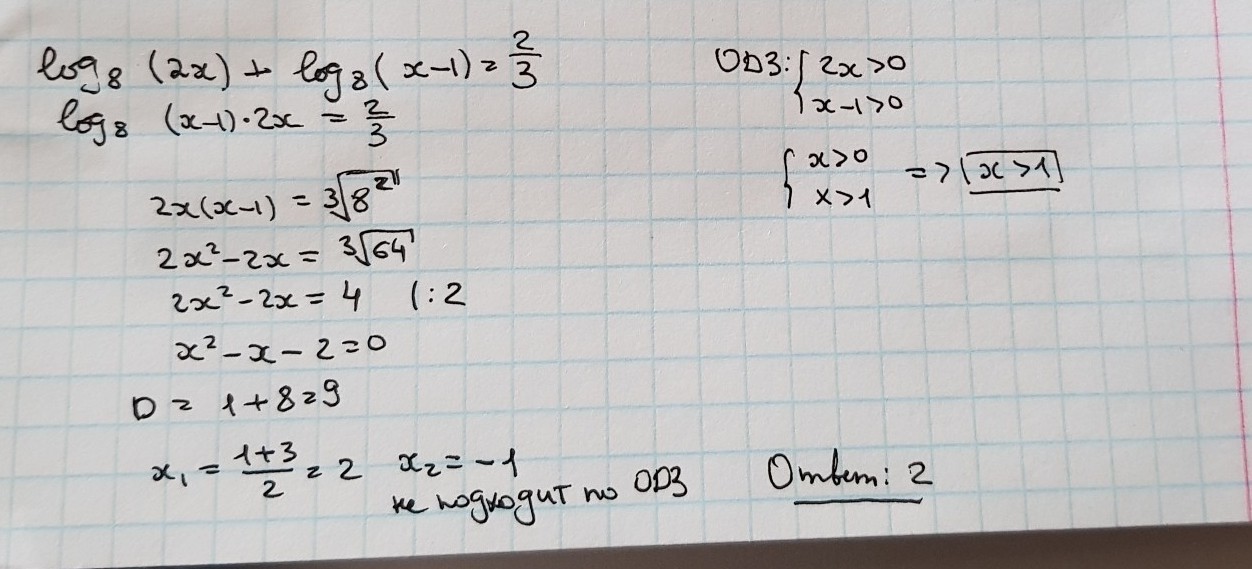 log₈ (2x) + log₈(x-1) = 2/3
log₈ (x-1)·2x = 2/3
2x(x-1) = ∛8²
2x²-2x = ∛64
2x²-2x = 4 (:2
x²-x-2=0
D = 1+8=9
x₁ = (1+3)/2 = 2 x₂ = -1
не подходит по ОДЗ
ОДЗ: { 2x>0
x-1>0
{ x>0
x>1 => x>1
Ответ: 2